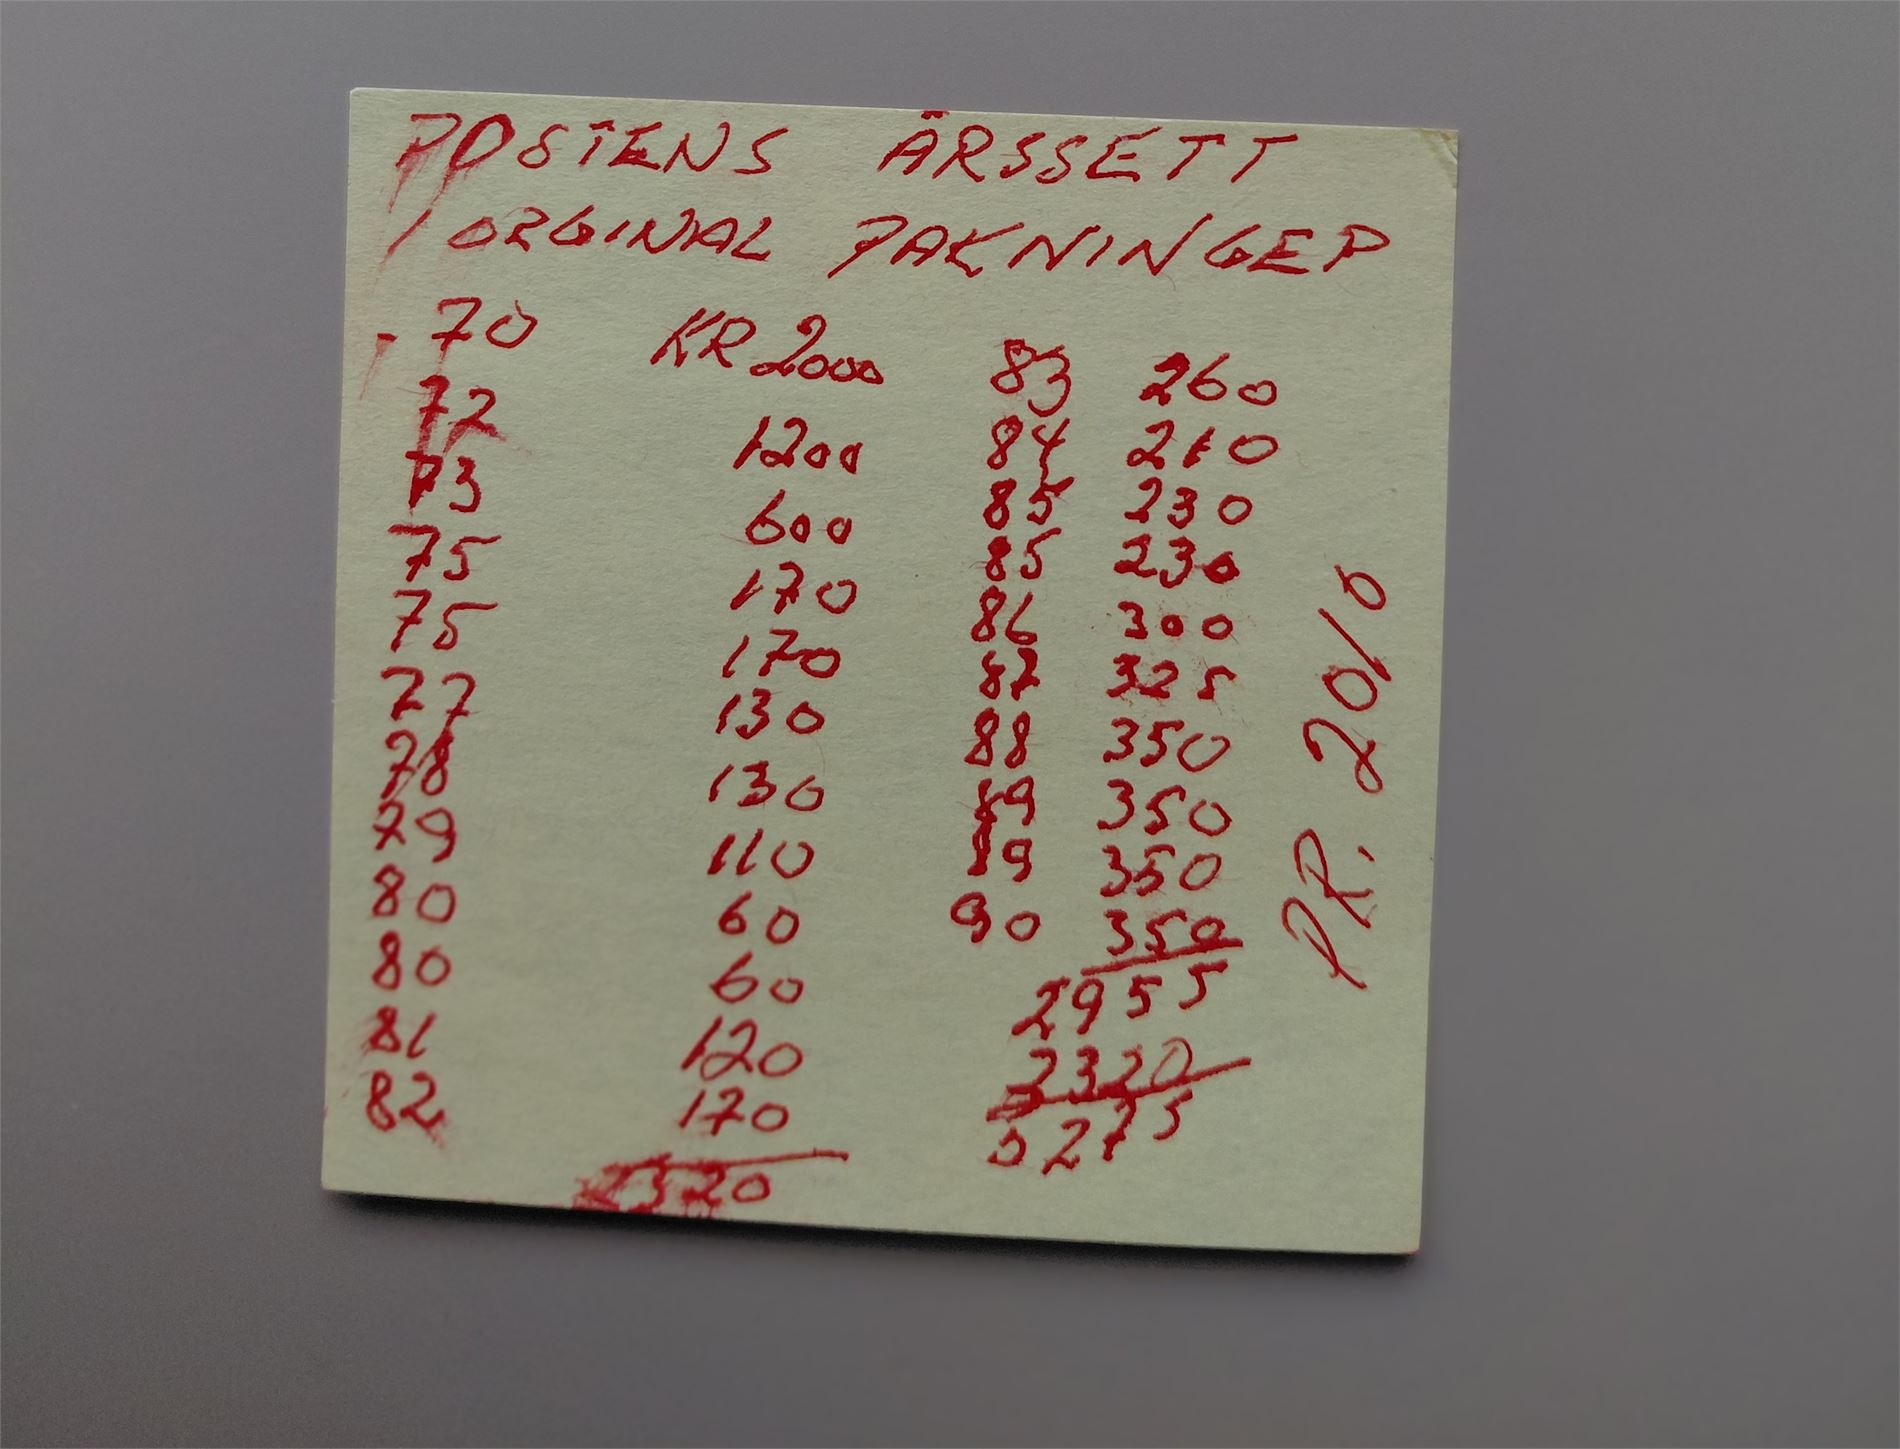 POSTENS ÅRSSETT
I ORGINAL PAKNINGER
70 KR 2000
72 1200
73 600
75 170
75 170
77 130
78 130
79 110
80 60
80 60
81 120
82 170
2320
83 260
84 210
85 230
85 230
86 300
87 325
88 350
89 350
89 350
90 350
2955
2320
5275
PR. 2010